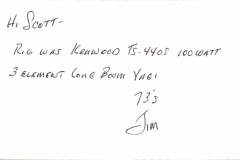 Hi Scott-
Rig was Kenwood TS-440S 100 watt
3 element long boom Yagi
73's
Jim